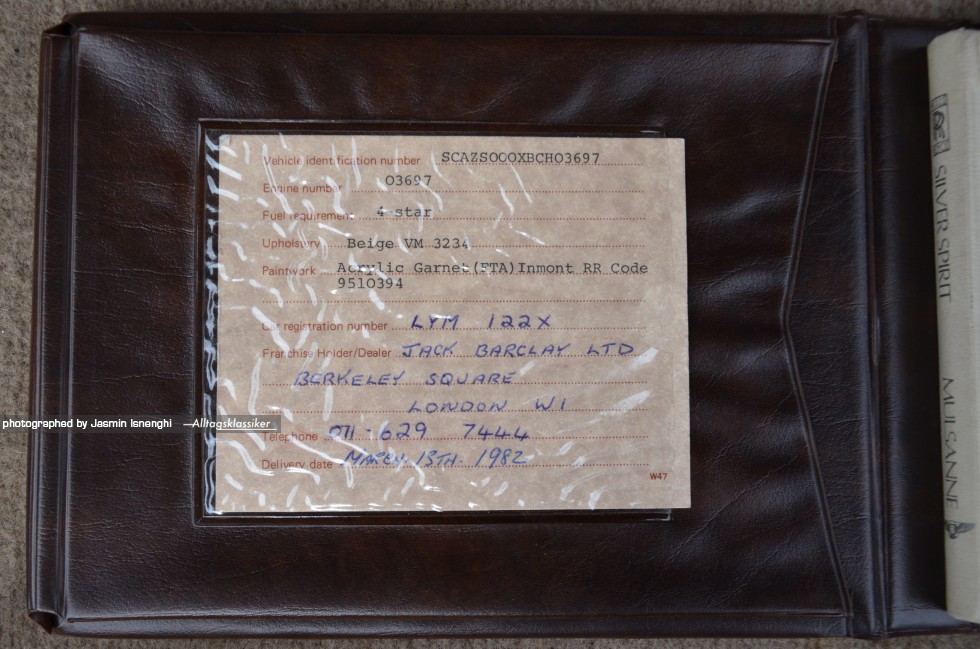 Vehicle identification number SCAZS000XBCH03697
Engine number 03697
Fuel requirement 4-star
Upholstery Beige VM 3234
Paintwork Acrylic Garnet(FTA)Inmont RR Code
9510394
Car registration number LYM 122X
Franchise Holder/Dealer JACK BARCLAY LTD
BERKELEY SQUARE
LONDON W1
Telephone 071-629 7444
Delivery date MARCH 13TH. 1982
W47
photographed by Jasmin Isnenghi —Alltagsklassiker
SILVER SPIRIT
MULSANNE